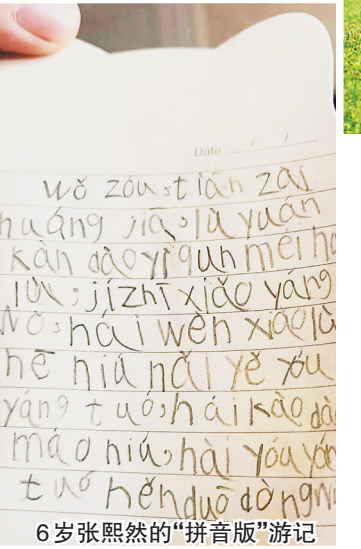 Date / /
wǒ zóu,tiān zāi
huáng jiā,lù yuán
kàn dàoyìqún méi h
lùi,jízhī xiǎo yáng
wǒ,hái wèn xiǎolù
hē niú nǎi yě yǒu
yáng tuó,hái kào dà
máo niú,hài yóu yóu
tuó hěnduō dòngw
6岁张熙然的“拼音版”游记